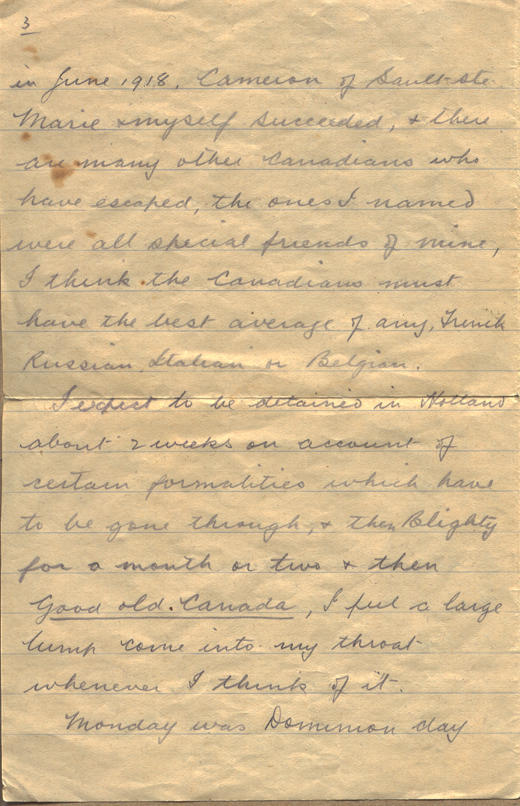 3
in June 1918. Cameron of Sault-ste.
Marie & myself succeeded, & there
are many other Canadians who
have escaped, the ones I named
were all special friends of mine,
I think the Canadians must
have the best average of any, French
Russian, Italian or Belgian.
I expect to be detained in Holland
about 2 weeks on account of
certain formalities which have
to be gone through, & then Blighty
for a month or two & then
Good old Canada, I feel a large
lump come into my throat
whenever I think of it.
Monday was Dominion day